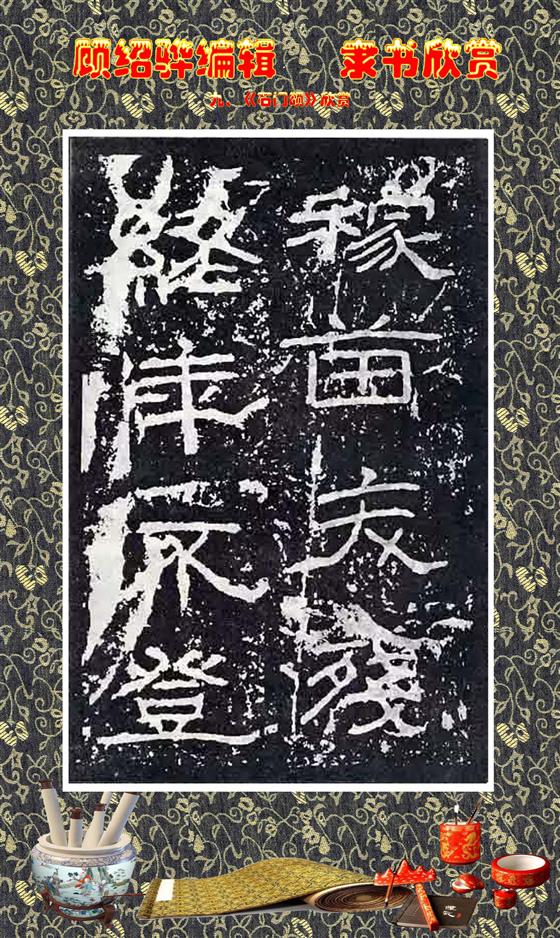 顾绍骅编辑 隶书欣赏
九、《石门颂》欣赏
稼苗夭殘
終年不登